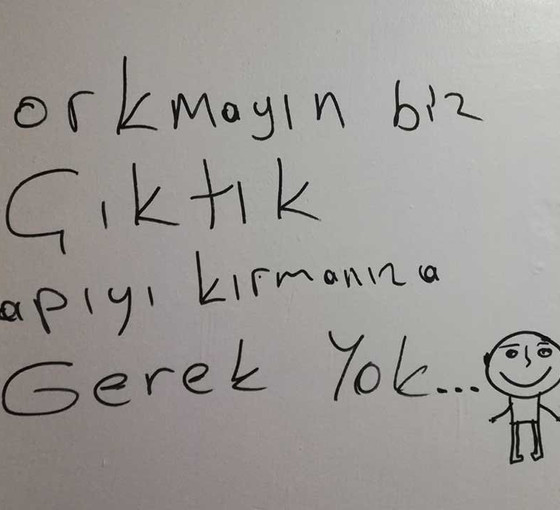 orkmayın biz
Çıktık
apıyı kırmanıza
Gerek Yok...